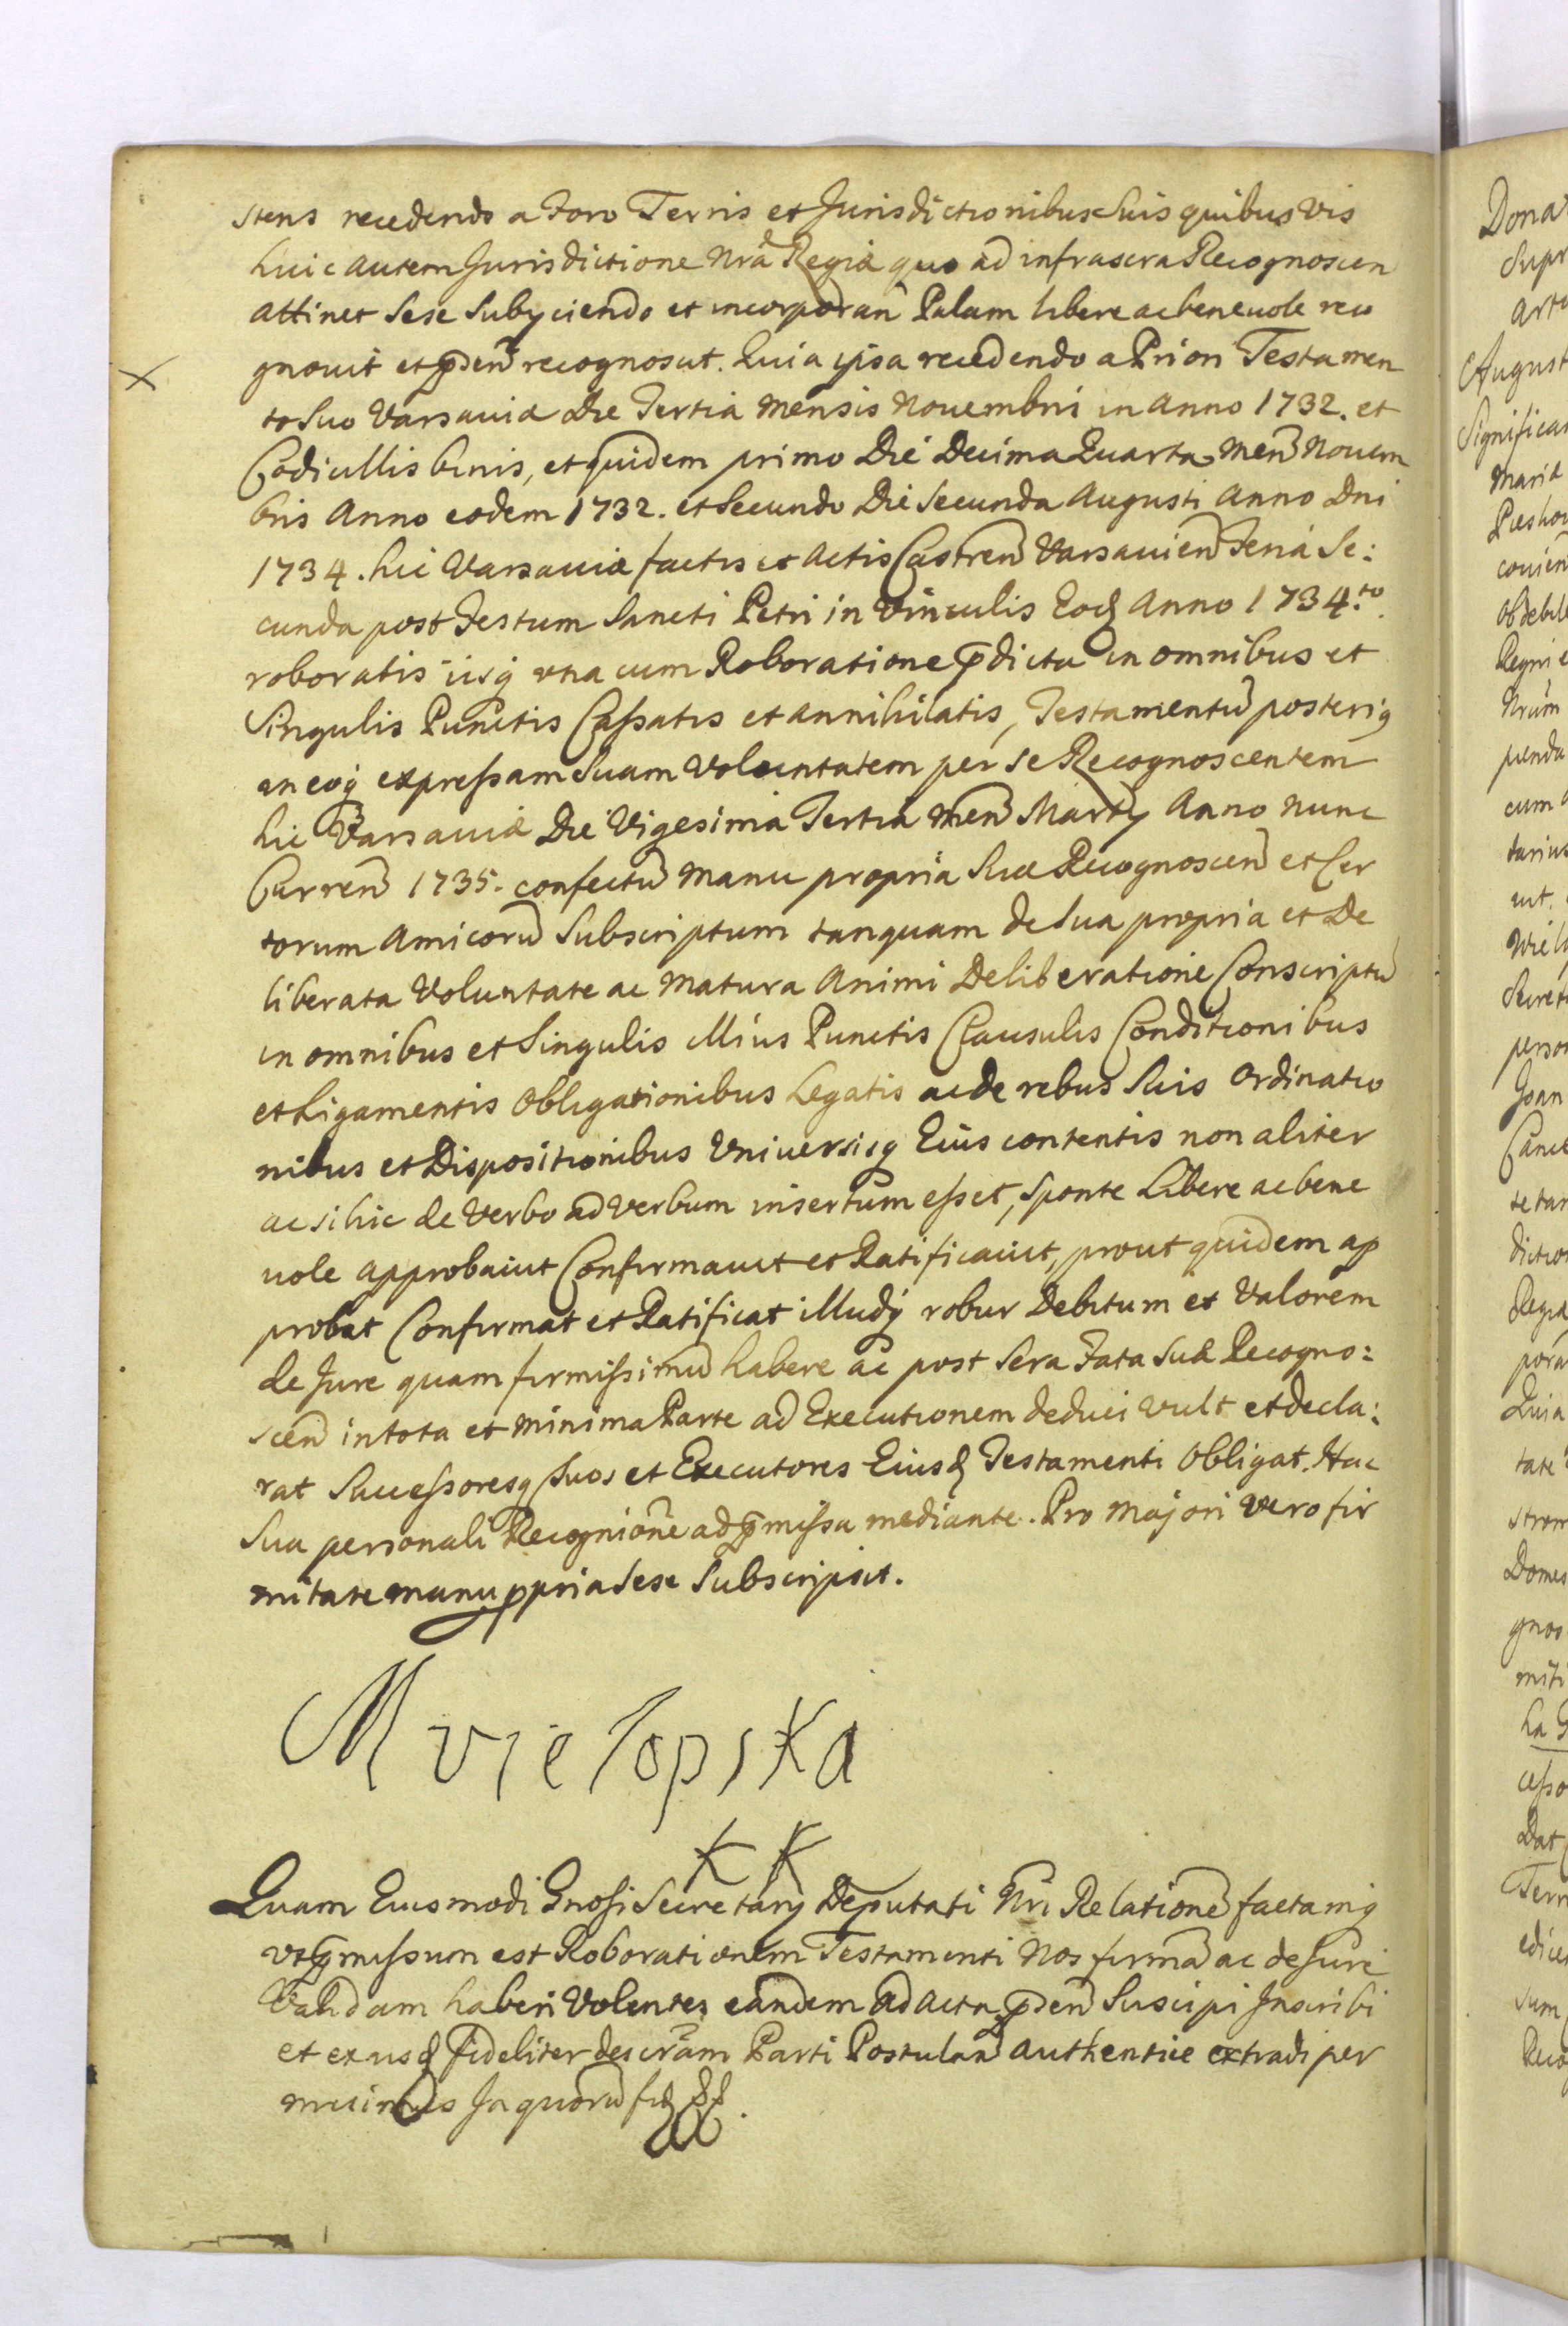 stens recedendo a Foro Terris et Jurisdictionibus Suis quibus vis
huic autem Jurisdictione Nrâ Regiæ quo ad infrascra Recognoscen
attinet Sese Subyciendo et incorporan̄ Palam libere ac beneuole reco
gnouit et p̄sen̄ recognoscit. Quia ipsa recedendo a Priori Testamen
to Suo Varsauiæ Die Tertia Mensis Nouembris in Anno 1732. et
Codicillis binis, et quidem primo Die Decima Quarta Men̄ Nouem
bris Anno eodem 1732. et Secundo Die Secunda Augusti Anno Dni
1734. hic Varsauiæ factis et Actis Castren̄ Varsauien̄ Feria Se:
cunda post Festum Sancti Petri in Vinculis Eoḍ Anno 1734.to
roboratis iisq vna cum Roboratione p̄dicta in omnibus et
Singulis Punctis Cassatis et annihilatis, Testamentū posterig
in eoq expressam Suam Voluntatem per se Recognoscentem
hic Varsauiæ Die Vigesima Tertia Men̄ Marty Anno nunc
Curren̄ 1735. confectū Manu propria Suæ Recognoscen̄ et Cer
torum Amicorū Subscriptum tanquam de Sua propria et De
liberata Voluntate ac Matura Animi Deliberatione Conscriptū
in omnibus et Singulis illius Punctis Clausulis Conditionibus
et Ligamentis Obligationibus Legatis ac de rebus Suis Ordinatio
nibus et Dispositionibus Vniuersisq Eius contentis non aliter
ac si hic de Verbo ad Verbum insertum esset, Sponte Libere ac bene
uole approbauit Confirmauit et Ratificauit, prout quidem ap
probat Confirmat et Ratificat illudq robur Debitum et Valorem
de Jure quam firmissimū habere ac post Sera Fata Suæ Recogno:
scen̄ in tota et minima Parte ad Executionem deduci vult et decla:
rat Successoresq Suos et Executores Eiusḍ Testamenti Obligat. Hac
Sua personali Recognione ad p̄missa mediante. Pro Majori vero fir
mitate manu ppria Sese Subscripsit.
M vielopska
K K
Quam Eiusmodi Gnosi Secretary Deputati Nri Relatione factamq
vt p̄missum est Roborationem Testamenti Nos firmā ac de Jure
Validam haberi Volentes eandem ad Acta p̄sen̄ Suscipi Inscribi
et ex iisḍ fideliter descrām Parti Postulan̄ authentice extradi per
misimus In quorū fiḍ